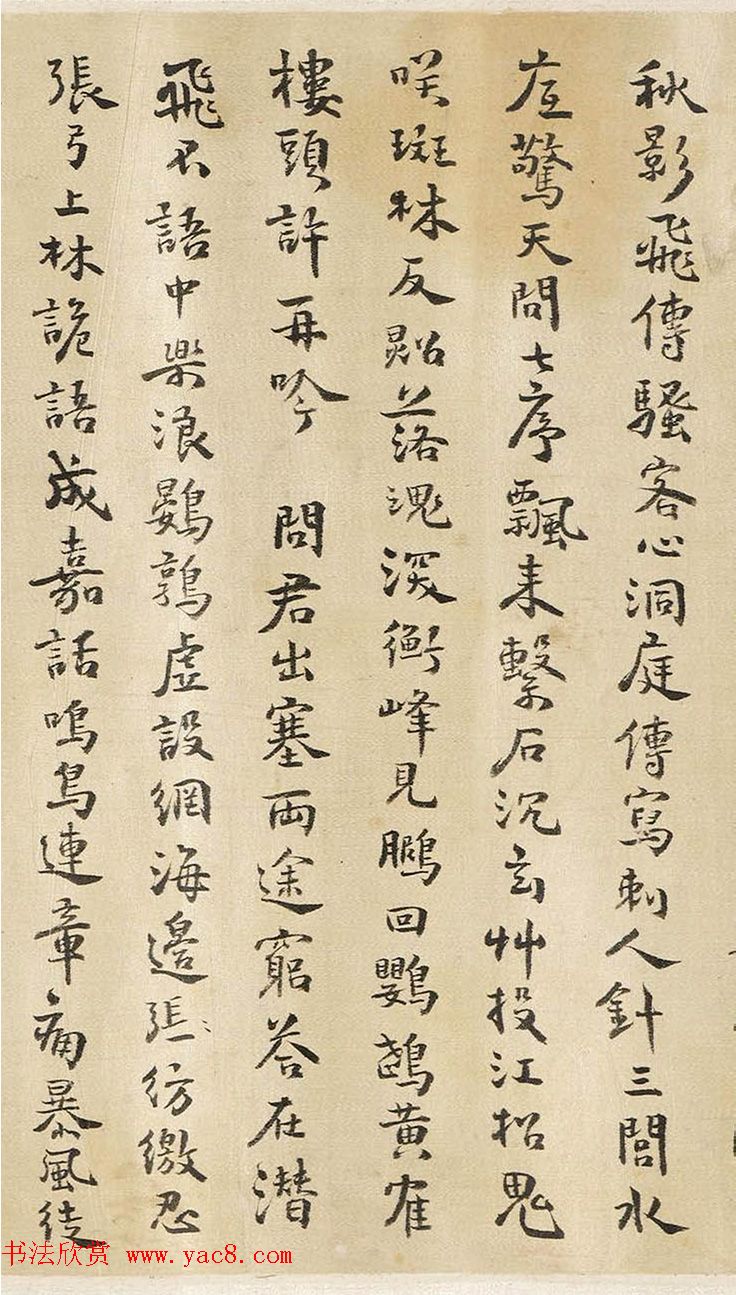 秋影飛傳騷客心洞庭傳寫刺人針三閭水
驚天問七序飄来繫石沉玄艸投江招鬼
咲斑林反落深衡峰見鵩回鸚鵡黄隺
樓頭許再吟 問君出塞兩途窮荅在潛
飛不語中樂浪鷃鶉虛設網海邊繳忍
張弓上林詭語成嘉話鳴鳥連章痛暴風徒
书法欣赏 www.yac8.com